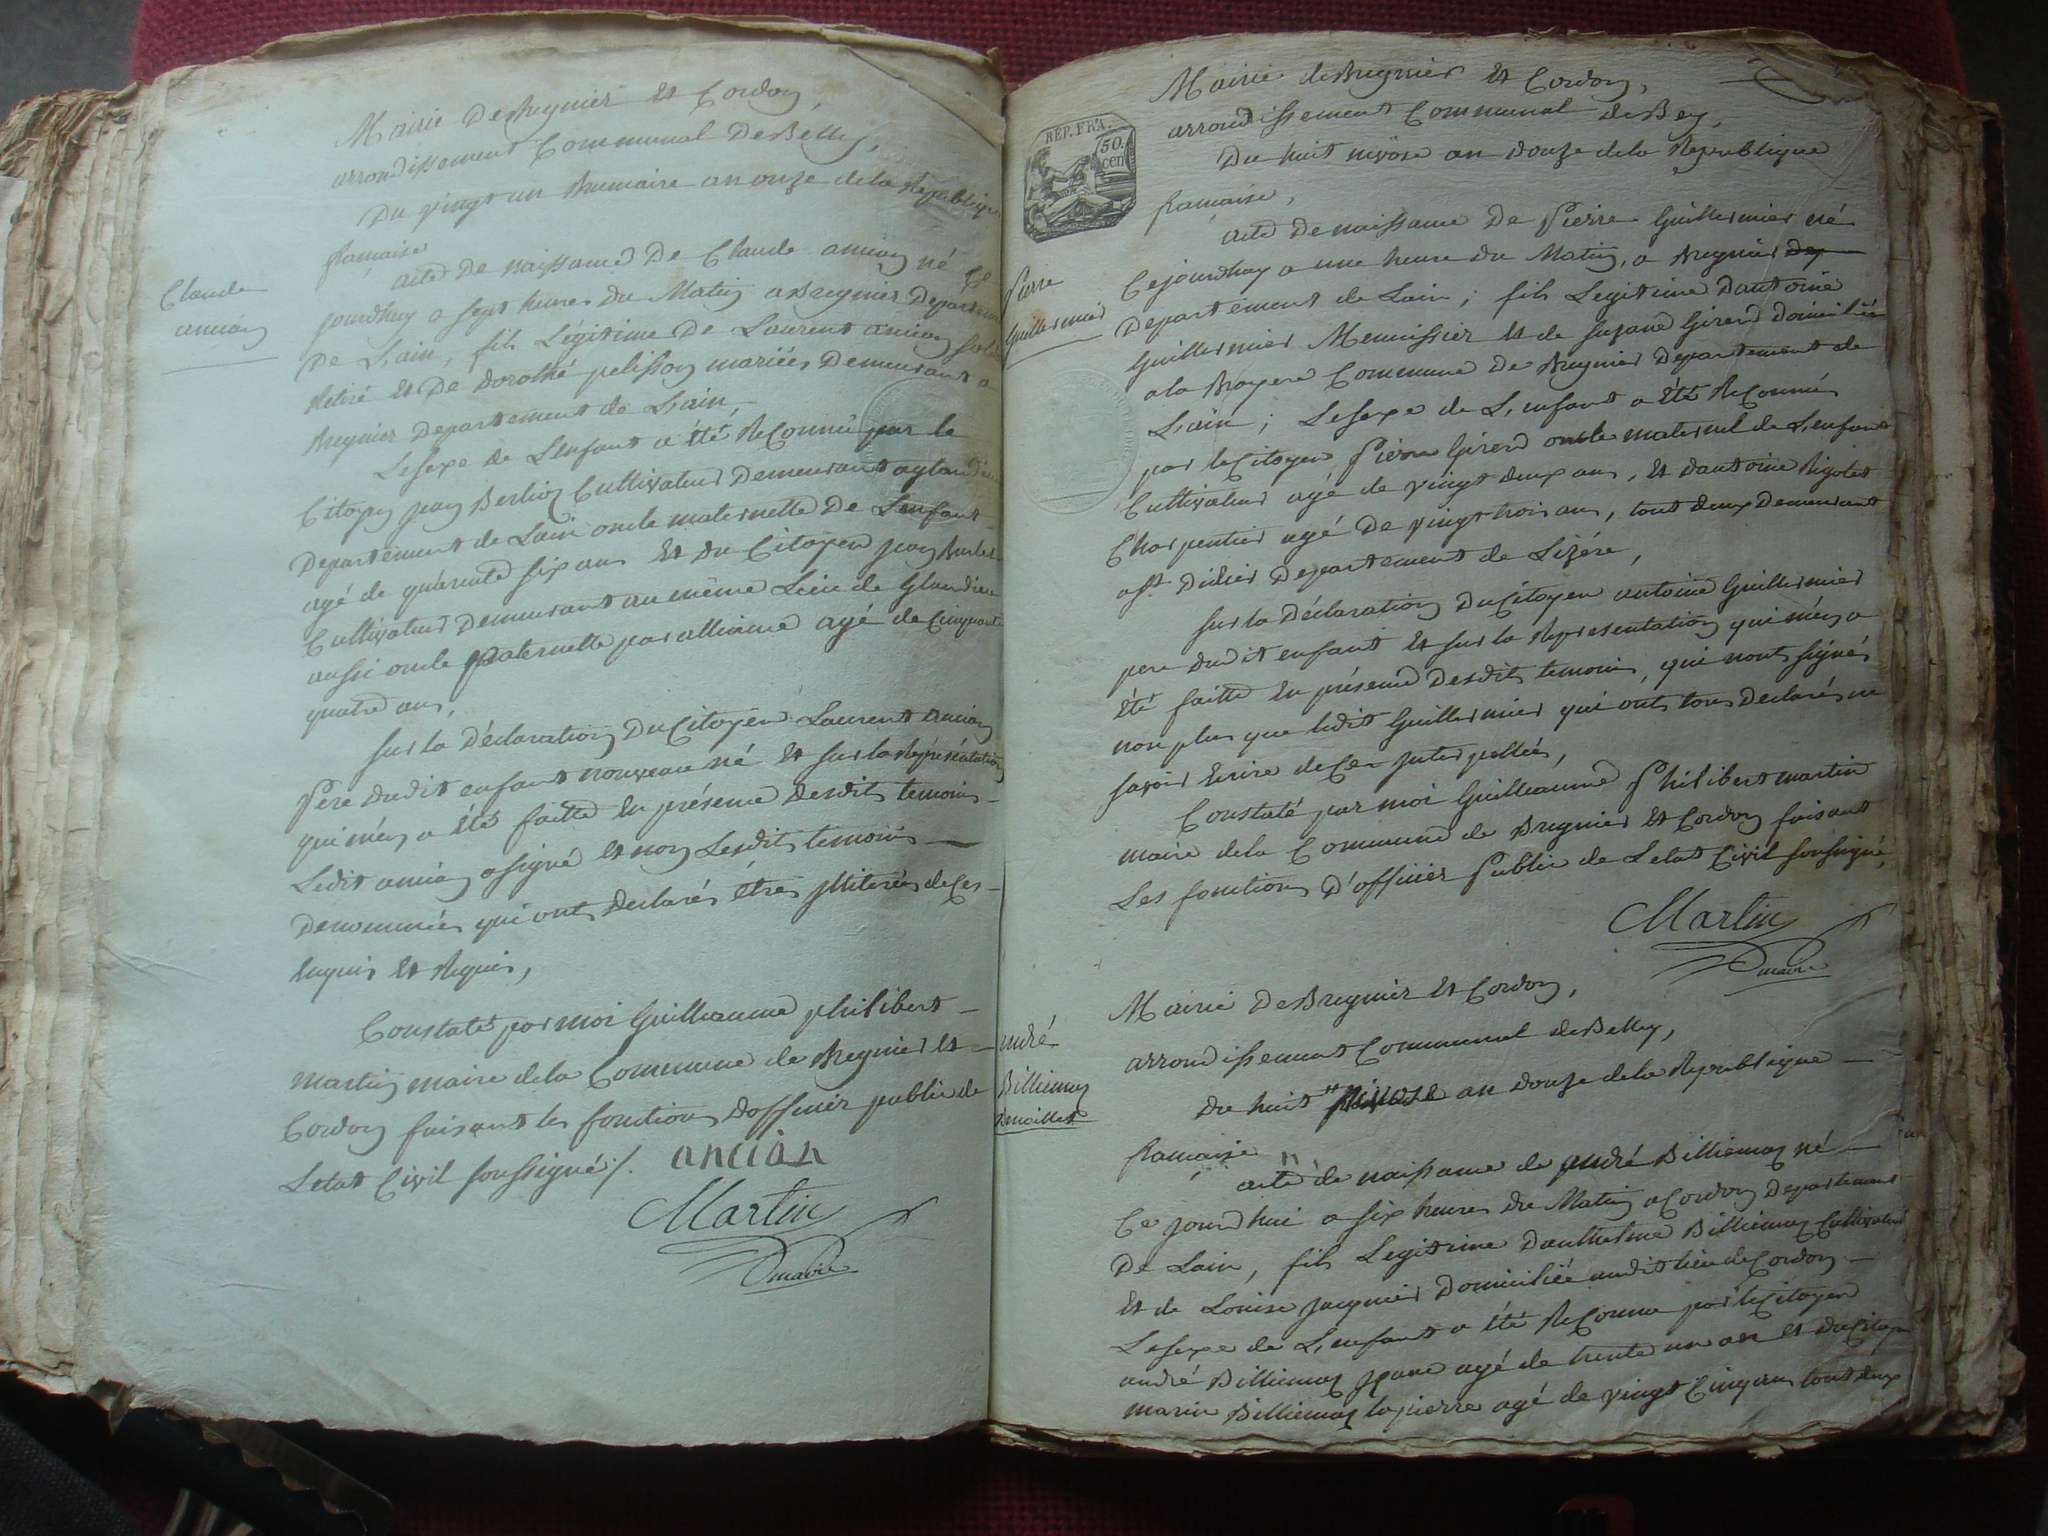 Mairie De Bregnier Et Cordon,
arrondissement Communal De Belley,
Du vingt un Brumaire an onze de la Republique
francaise
Claude
ancian
acte De naissance De Claude ancian né Ce
jourdhuy a sept heures du Matin a Bregnier Departement
De Lain, fils Légitime De Laurent ancian
Retiré et De Dorothé pelisson mariés Demeurant a
Bregnier Departement de Lain,
Le sexe de Lenfant a été Reconnu par le
Citoyen jean Berlioz Cultivateur Demeurant a glandieu
Departement de Lain oncle maternelle De Lenfant
agé de quarente six ans Et du Citoyen jean
Cultivateur Demeurant au même Lieu de Glandieu
aussi oncle paternelle par alliance agé de Cinquante
quatre ans,
sur la Déclaration Du Citoyen Laurent ancian
Pere dudit enfant nouveau né Et sur la Représentation
qui m'en a été faitte En présence Desdits temoins
Ledit ancian a signé et non Lesdits temoins
Denommés qui ont Declarés étres illiterés de Ces
Enquis Et Requis,
Constaté par moi Guilleaume philibert
martin maire de la Commune de Bregnier et
Cordon faisant les fonctions Dofficier public de
Letat Civil soussigné /. ancian
Martin
maire
REP. FRA.
50.
cen
Mairie de Bregnier Et Cordon,
arrondissement Communal de Bey,
Du huit nivose an Douze de la Republique
francaise,
Pierre
Guillermier
acte De naissance De Pierre Guillermier né
Cejourdhuy a une heure du Matin, a Bregnier
Departement de Lain; fils Legitime Dantoine
Guillermier Menuissier Et de suzane Girerd Domiciliés
a la Bruyere Commune De Bregnier Departement de
Lain; Le sexe de Lenfant a été Reconnus
par le Citoyen Pierre Girerd oncle maternel de Lenfant
Cultivateur agé de vingt deux ans, Et dantoine Rigolet
Charpentier agé De vingt trois ans, tout deux Demeurant
a st. Didier Departement de Lizére,
sur la Déclaration Du Citoyen antoine Guillermier
pere dudit enfant et sur la Representation qui m'en a
été faitte En présence Desdits temoins, qui nont signés
non plus que ledit Guillermier qui ont tous Declarés ne
savoir Ecrire de Ce Interpellés,
Constaté par moi Guilleaume Philibert martin
maire de la Commune de Bregnier Et Cordon faisant
Les fonctions D'officier Public de Letat Civil soussigné,
Martin
maire
Mairie De Bregnier Et Cordon,
arrondissement Communal de Belley,
Du huit nivose an Douze de la Republique
francaise
andré
Billiemaz
acte de naissance de andré Billiemaz né
Ce jourdhui a six heures du Matin a Cordon Departement
De Lain, fils Legitime Danthelme Billiemaz Cultivateur
Et de Louise jacquier Domiciliée audit lieu de Cordon
Le sexe de Lenfant a été Reconnu par le Citoyen
andré Billiemaz agé de trente un an et du Citoyen
marin Billiemaz la pierre agé de vingt Cinq ans tout deux